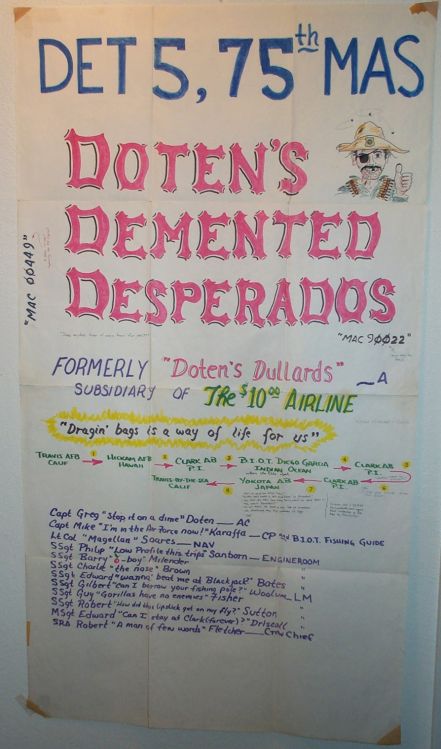 DET 5, 75th MAS
DOTEN'S
DEMENTED
DESPERADOS
"MAC 00449"
"MAC 90022"
FORMERLY "Doten's Dullards" _A
SUBSIDIARY OF The $10.00 AIRLINE
"Dragin' bags is a way of life for us"
TRAVIS AFB CALIF 1 HICKAM AFB HAWAII 2 CLARK AB P.I. 3 B.I.O.T. DIEGO GARCIA INDIAN OCEAN 4 CLARK AB P.I. 5
TRAVIS-BY-THE-SEA CALIF 8 YOKOTA AB JAPAN 7 CLARK AB P.I. 6
Capt Greg "Stop it on a dime" Doten — AC
Capt Mike "I'm in the Air Force now!" Karaffa — CP and B.I.O.T. FISHING GUIDE
Lt Col "Magellan" Soares — NAV
SSgt Philip "Low Profile this trip" Sanborn — ENGINEROOM
SSgt Barry "B-boy" Milender "
SSgt Charlie "the nose" Brown "
SSgt Edward "wanna' beat me at Blackjack" Bates "
SSgt Gilbert "Can I borrow your fishing pole?" Woolum — LM
SSgt Guy "Gorillas have no enemies" Fisher "
SSgt Robert "How did this lipstick get on my fly?" Sutton "
MSgt Edward "Can I stay at Clark (forever)?" Driscoll "
SRA Robert "A man of few words" Fletcher — Crew Chief